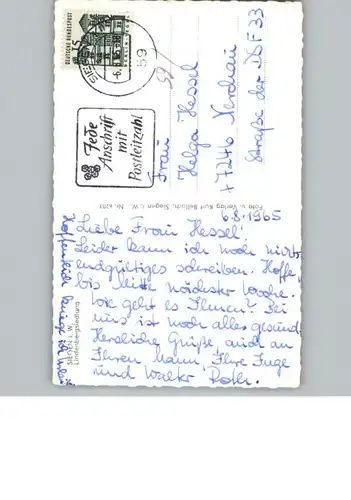 DEUTSCHE BUNDESPOST
SIEGEN
-6.
59
Jede
Anschrift
mit
Postleitzahl
59
Frau
Helga Hessel
+7246 Nerchau
Straße der DSF 33
Foto u. Verlag Kurt Bellisch, Siegen i. W., Nr.
6.8.1965
Liebe Frau Hessel!
Leider kann ich noch nichts
endgültiges schreiben. Hoffe,
bis Mitte nächster Woche.
Wie geht es Ihnen? Bei
uns ist noch alles gesund.
Herzliche Grüße, auch an
Ihren Mann, Ihre Inge
und Walter Roth.
Hoffentlich
SIEGEN i. W.
Lindenbergsiedlung